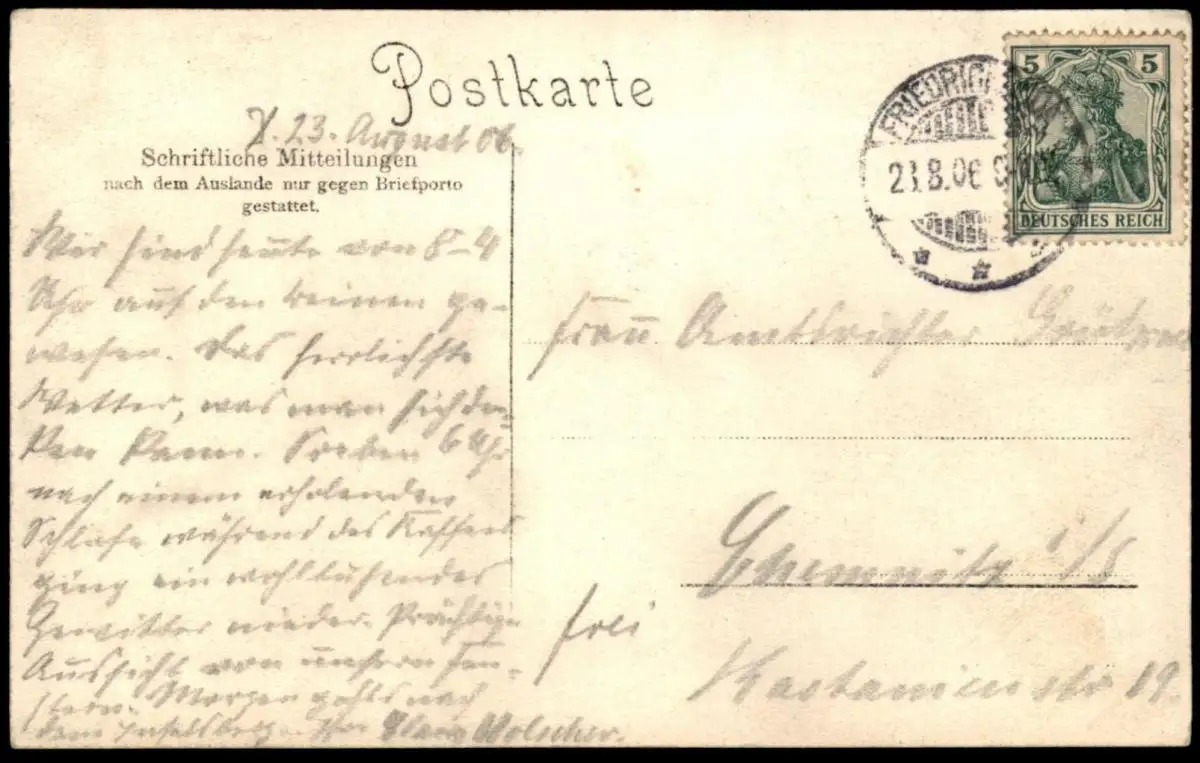 Postkarte
23. August 06.
Schriftliche Mitteilungen
nach dem Auslande nur gegen Briefporto
gestattet.
Wir sind heute von 8–4
Uhr auf den Beinen ge-
wesen. Das herrlichste
Wetter, was man sich den-
ken kann. Soeben 6 Uhr
nach einem erholenden
Schlafe während des Kaffees
ging ein wohltuendes
Gewitter nieder. Prächtige
Aussicht von unsern Fen-
stern. Morgen gehts nach
dem Inselsberg.
FRIEDRICH
23.8.06
5 5
DEUTSCHES REICH
Frau Amtsrichter
Chemnitz i/S
frei
Kastanienstr 19.